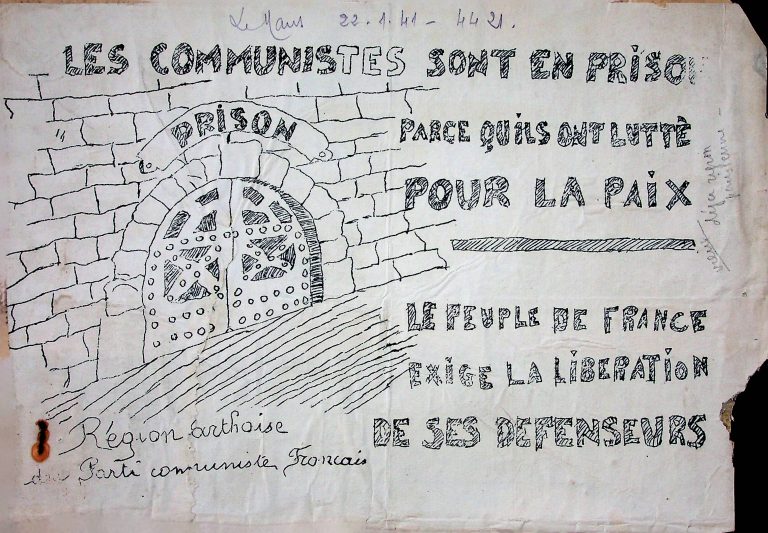 Le Mans 22.1.41 - 4421.
LES COMMUNISTES SONT EN PRISON
PRISON
PARCE QU'ILS ONT LUTTÈ
POUR LA PAIX
LE PEUPLE DE FRANCE
EXIGE LA LIBERATION
DE SES DEFENSEURS
Région Sarthoise
du Parti communiste Francais